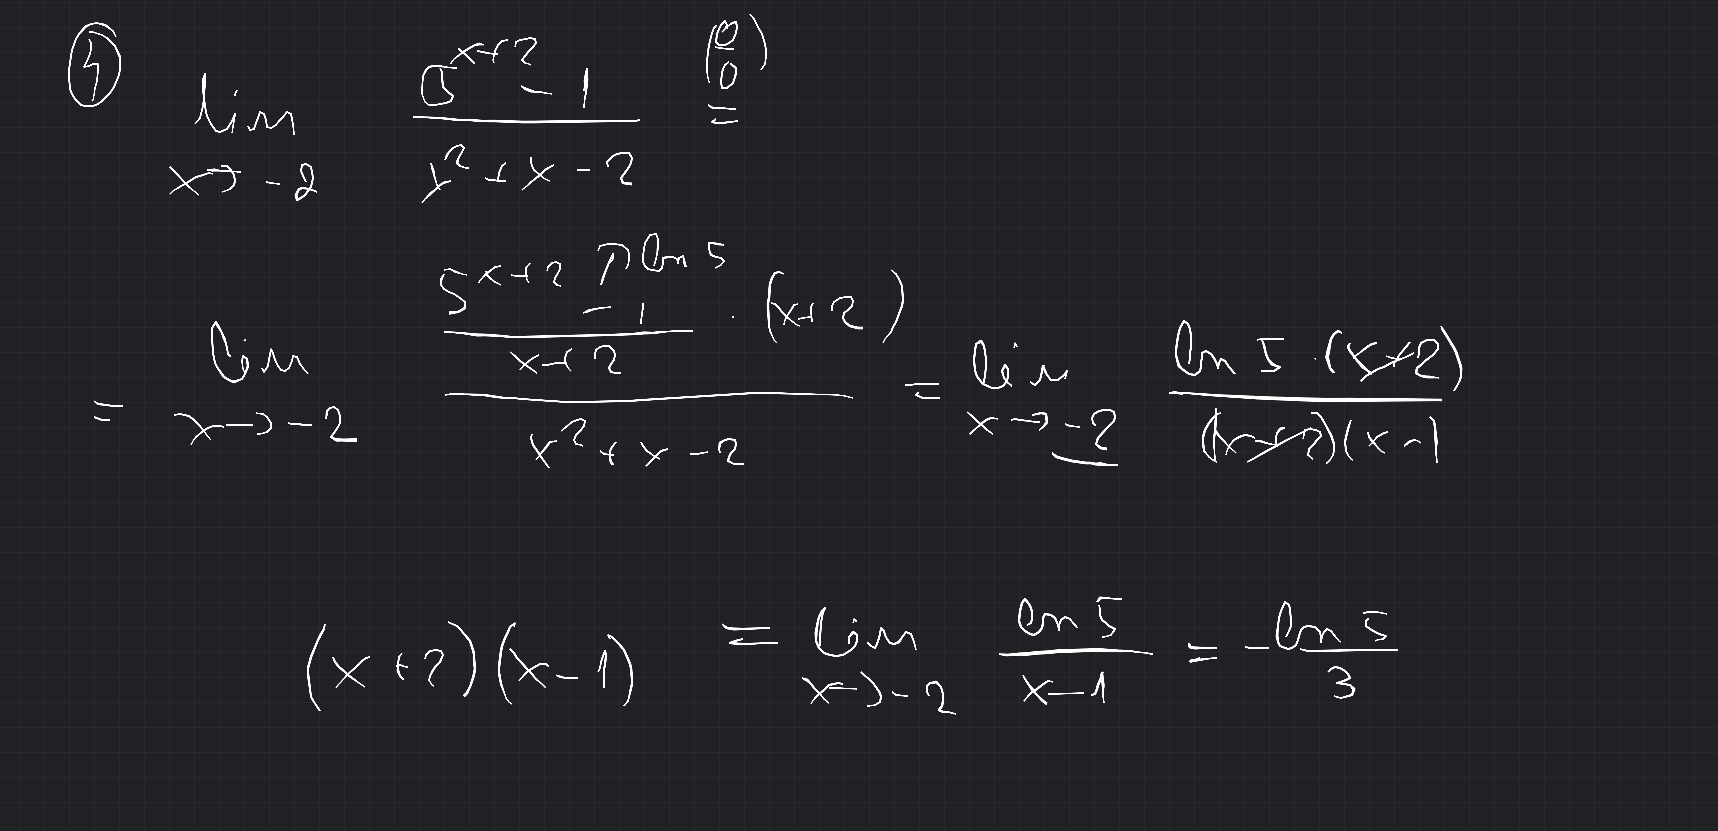 ④ lim x→-2 (5^(x+2) - 1)/(x² + x - 2) (0/0) =
= lim x→-2 ((5^(x+2) - 1)/(x+2) ↗ ln 5 · (x+2))/(x² + x - 2) = lim x→-2 (ln 5 · (x+2))/((x+2)(x-1
(x+2)(x-1) = lim x→-2 ln 5/(x-1) = -ln 5/3